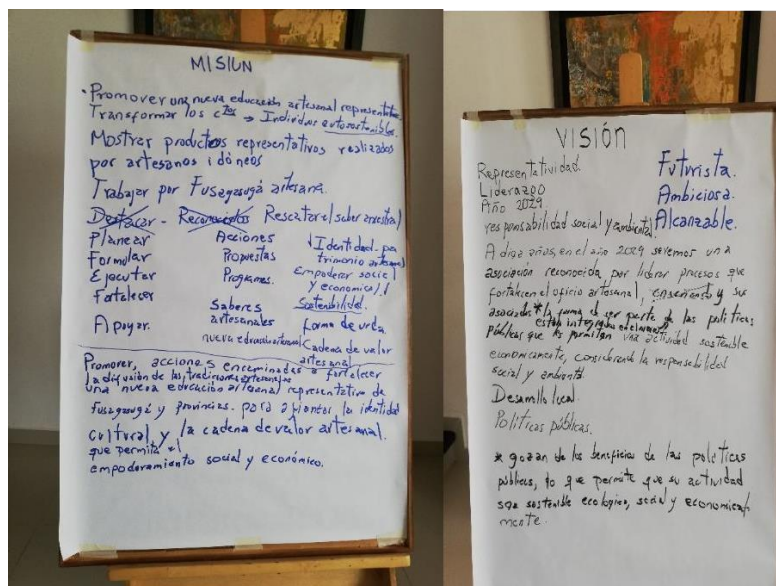 MISIÓN
• Promover una nueva educación artesanal representativa
Transformar los ctos → Individuos autosostenibles.
Mostrar productos representativos realizados
por artesanos idóneos
Trabajar por Fusagasugá artesana.
Destacar - Reconocerlos Rescatar el saber ancestral
Planear Acciones ↓ Identidad. pa
Formular Propuestas trimonio artesanal
Ejecutar Programas. Empoderar social
y económica
Fortalecer Sostenibilidad.
Saberes
Apoyar. artesanales forma de vida
nueva educación artesanal Cadena de valor
artesanal
Promover, acciones encaminadas a fortalecer
la difusión de las tradiciones artesanales
una nueva educación artesanal representativa de
fusagasugá y provincias. para afianzar la identidad
cultural y la cadena de valor artesanal.
que permita el
empoderamiento social y económico.
VISIÓN
Representatividad. Futurista.
Liderazgo Ambiciosa.
Año 2029 Alcanzable.
responsabilidad social y ambiental
A diez años, en el año 2029 seremos una
asociación reconocida por liderar procesos que
fortalecen el oficio artesanal, enseñanza y sus
asociados * la forma de ser parte de las políticas
están integrados
públicas que les permitan una actividad sostenible
económicamente, considerando la responsabilidad
social y ambiental
Desarrollo local.
Políticas públicas.
* gozan de los beneficios de las políticas
públicas, lo que permite que su actividad
sea sostenible ecologica, social y economicaf
mente.